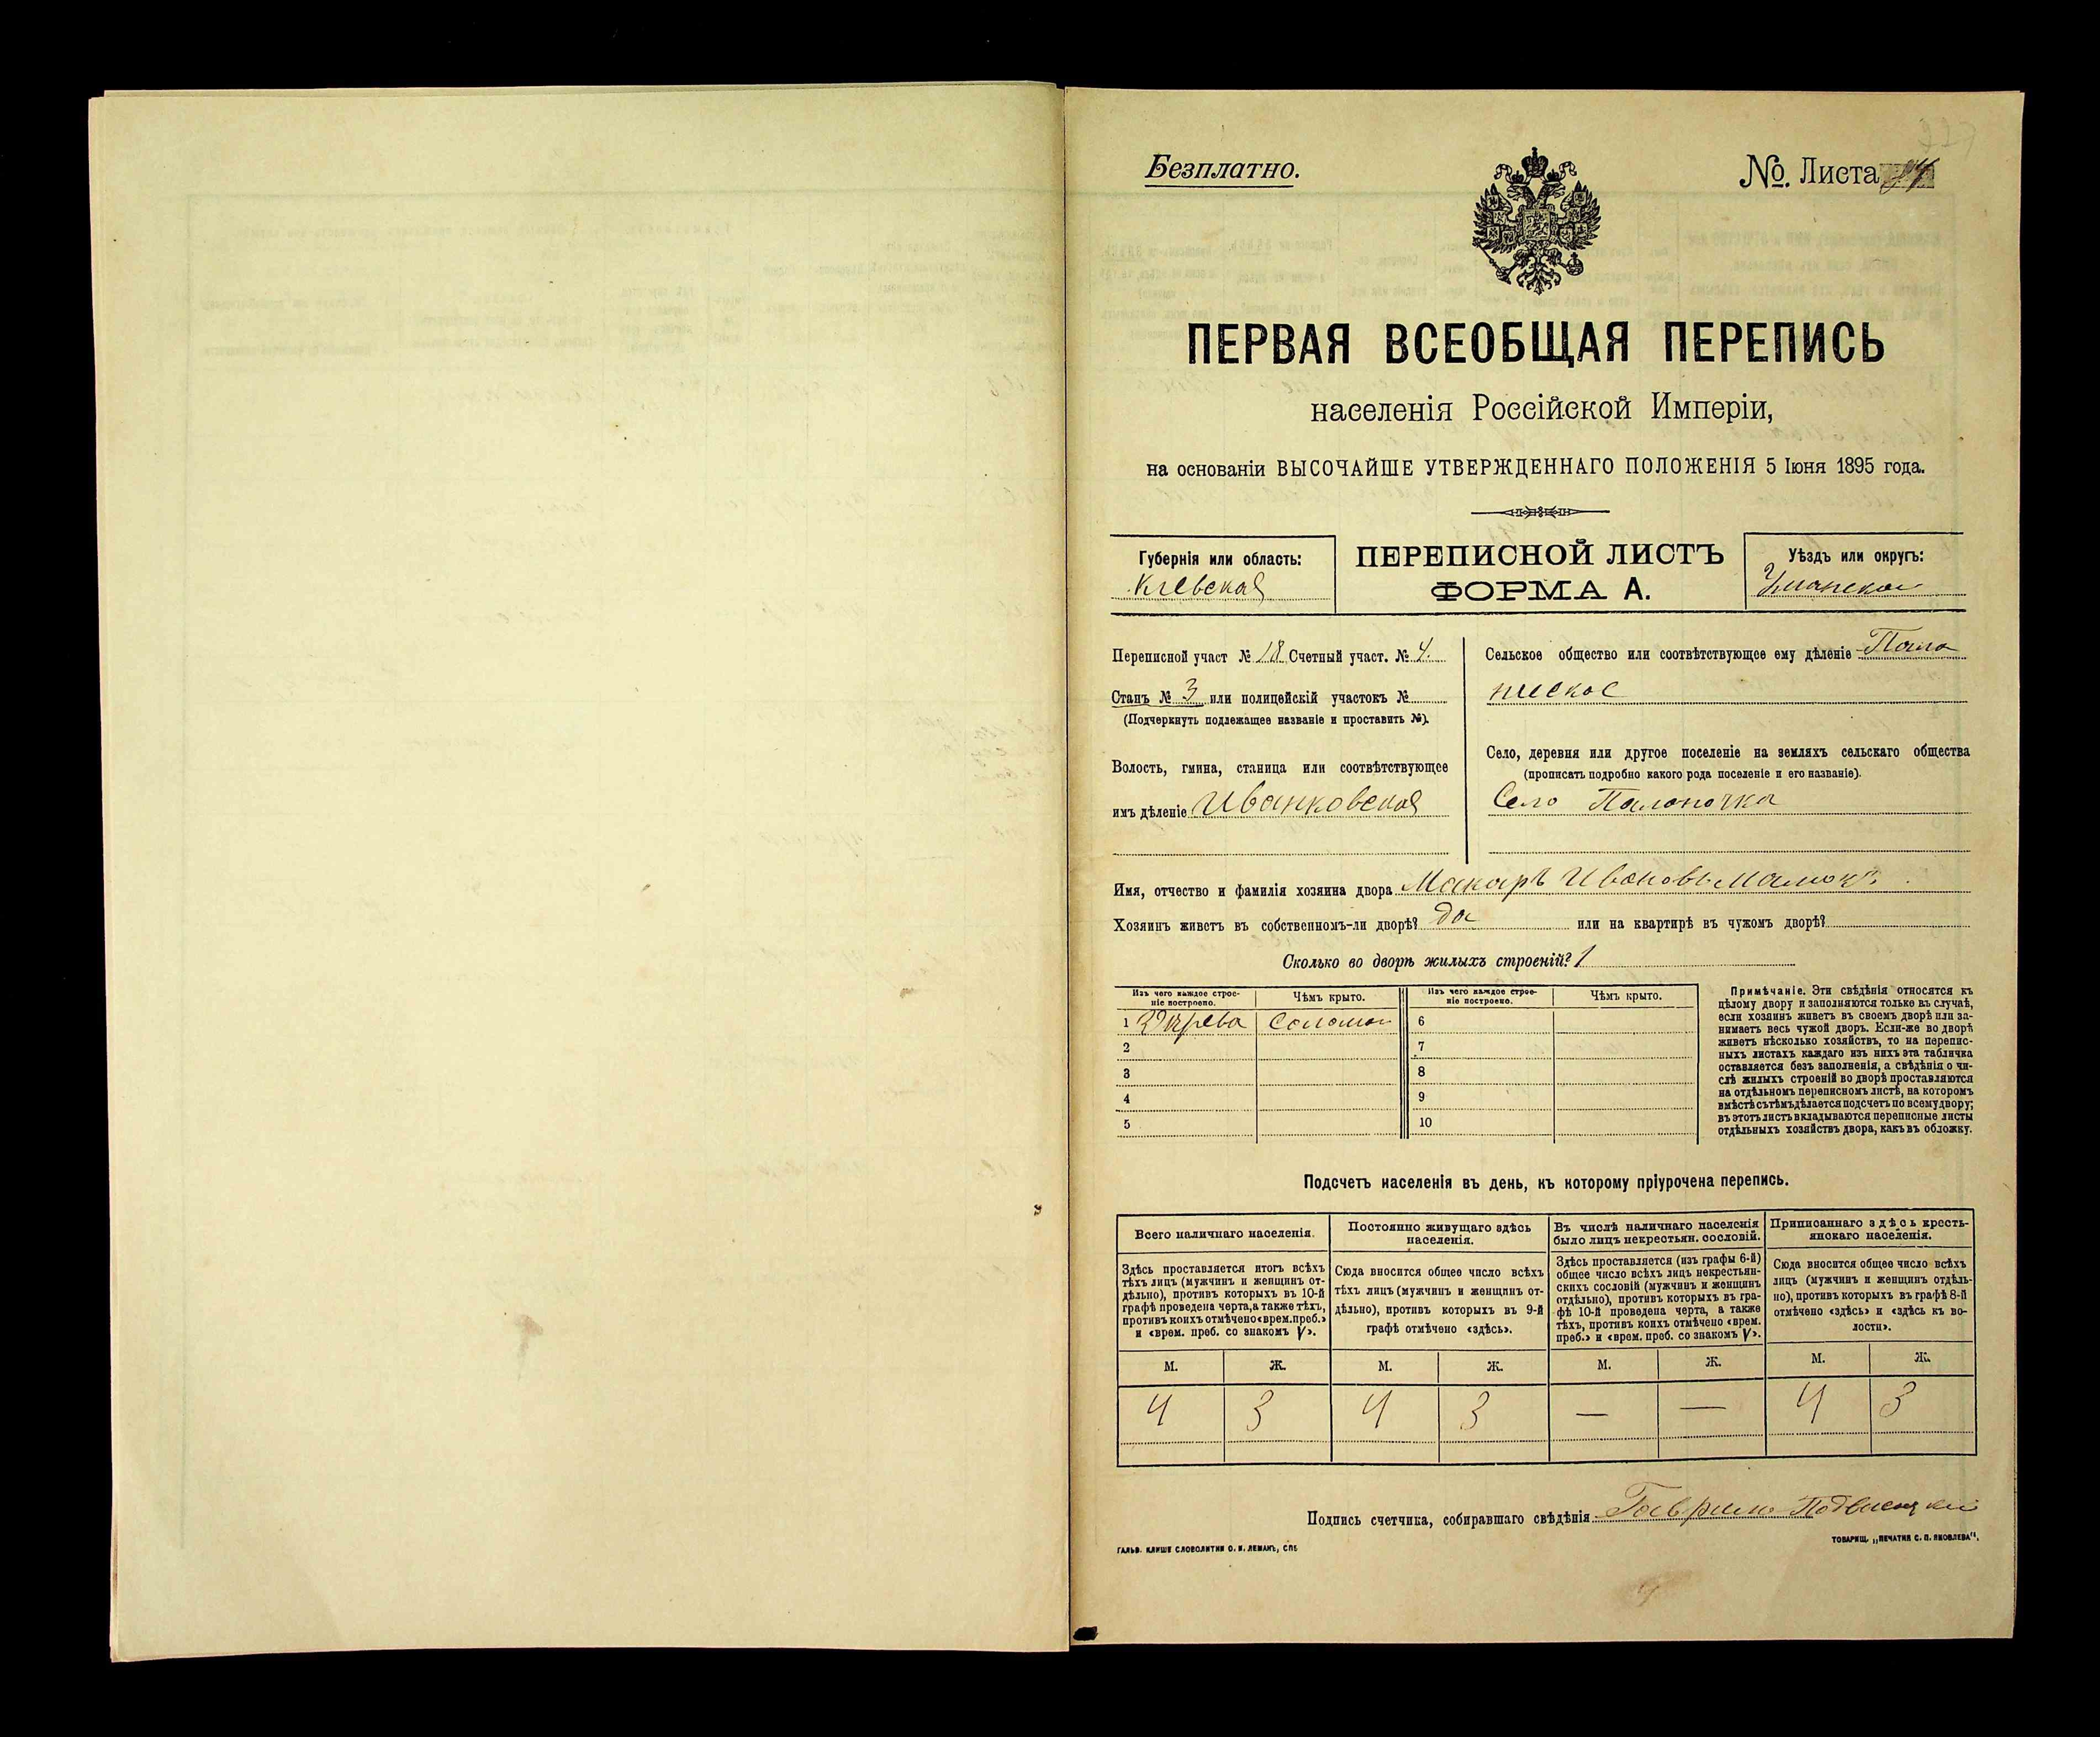 Безплатно.
№. Листа
ПЕРВАЯ ВСЕОБЩАЯ ПЕРЕПИСЬ
населенія Россійской Имперіи,
на основаніи ВЫСОЧАЙШЕ УТВЕРЖДЕННАГО ПОЛОЖЕНІЯ 5 Іюня 1895 года.
Губернія или область:
Кіевская
ПЕРЕПИСНОЙ ЛИСТЪ
ФОРМА А.
Уѣздъ или округъ:
Уманской
Переписной участ № 18 Счетный участ. № 4.
Станъ № 3 или полицейскій участокъ №
(Подчеркнуть подлежащее названіе и проставить №).
Волость, гмина, станица или соотвѣтствующее
имъ дѣленіе Иванковская
Сельское общество или соотвѣтствующее ему дѣленіе
Село, деревня или другое поселеніе на земляхъ сельскаго общества
(прописать подробно какого рода поселеніе и его названіе).
Село Палоночка
Имя, отчество и фамилія хозяина двора Макаръ Ивановъ Малюкъ
Хозяинъ живетъ въ собственномъ-ли дворѣ? да или на квартирѣ въ чужомъ дворѣ?
Сколько во дворѣ жилыхъ строеній? 1
Изъ чего каждое строе-
ніе построено.
Чѣмъ крыто.
Изъ чего каждое строе-
ніе построено.
Чѣмъ крыто.
1 Дерева Соломой 6
2 7
3 8
4 9
5 10
Примѣчаніе. Эти свѣдѣнія относятся къ
цѣлому двору и заполняются только въ случаѣ,
если хозяинъ живетъ въ своемъ дворѣ или за-
нимаетъ весь чужой дворъ. Если-же во дворѣ
живетъ нѣсколько хозяйствъ, то на перепис-
ныхъ листахъ каждаго изъ нихъ эта табличка
оставляется безъ заполненія, а свѣдѣнія о чи-
слѣ жилыхъ строеній во дворѣ проставляются
на отдѣльномъ переписномъ листѣ, на которомъ
вмѣстѣ съ тѣмъ дѣлается подсчетъ по всему двору;
въ этотъ листъ вкладываются переписные листы
отдѣльныхъ хозяйствъ двора, какъ въ обложку.
Подсчетъ населенія въ день, къ которому пріурочена перепись.
Всего наличнаго населенія.
Здѣсь проставляется итогъ всѣхъ
тѣхъ лицъ (мужчинъ и женщинъ от-
дѣльно), противъ которыхъ въ 10-й
графѣ проведена черта, а также тѣхъ,
противъ коихъ отмѣчено «врем. преб.»
и «врем. преб. со знакомъ V».
Постоянно живущаго здѣсь
населенія.
Сюда вносится общее число всѣхъ
тѣхъ лицъ (мужчинъ и женщинъ от-
дѣльно), противъ которыхъ въ 9-й
графѣ отмѣчено «здѣсь».
Въ числѣ наличнаго населенія
было лицъ некрестьян. сословій.
Здѣсь проставляется (изъ графы 6-й)
общее число всѣхъ лицъ некрестьян-
скихъ сословій (мужчинъ и женщинъ
отдѣльно), противъ которыхъ въ гра-
фѣ 10-й проведена черта, а также
тѣхъ, противъ коихъ отмѣчено «врем.
преб.» и «врем. преб. со знакомъ V».
Приписаннаго здѣсь кресть-
янскаго населенія.
Сюда вносится общее число всѣхъ
лицъ (мужчинъ и женщинъ отдѣль-
но), противъ которыхъ въ графѣ 8-й
отмѣчено «здѣсь» и «здѣсь къ во-
лости».
М. Ж. М. Ж. М. Ж. М. Ж.
4 3 4 3 — — 4 3
Подпись счетчика, собиравшаго свѣдѣнія
ГАЛЬВ. КЛИШЕ СЛОВОЛИТНИ О. И. ЛЕМАНЪ, СПБ
ТОВАРИЩ. „ПЕЧАТНЯ С. П. ЯКОВЛЕВА".